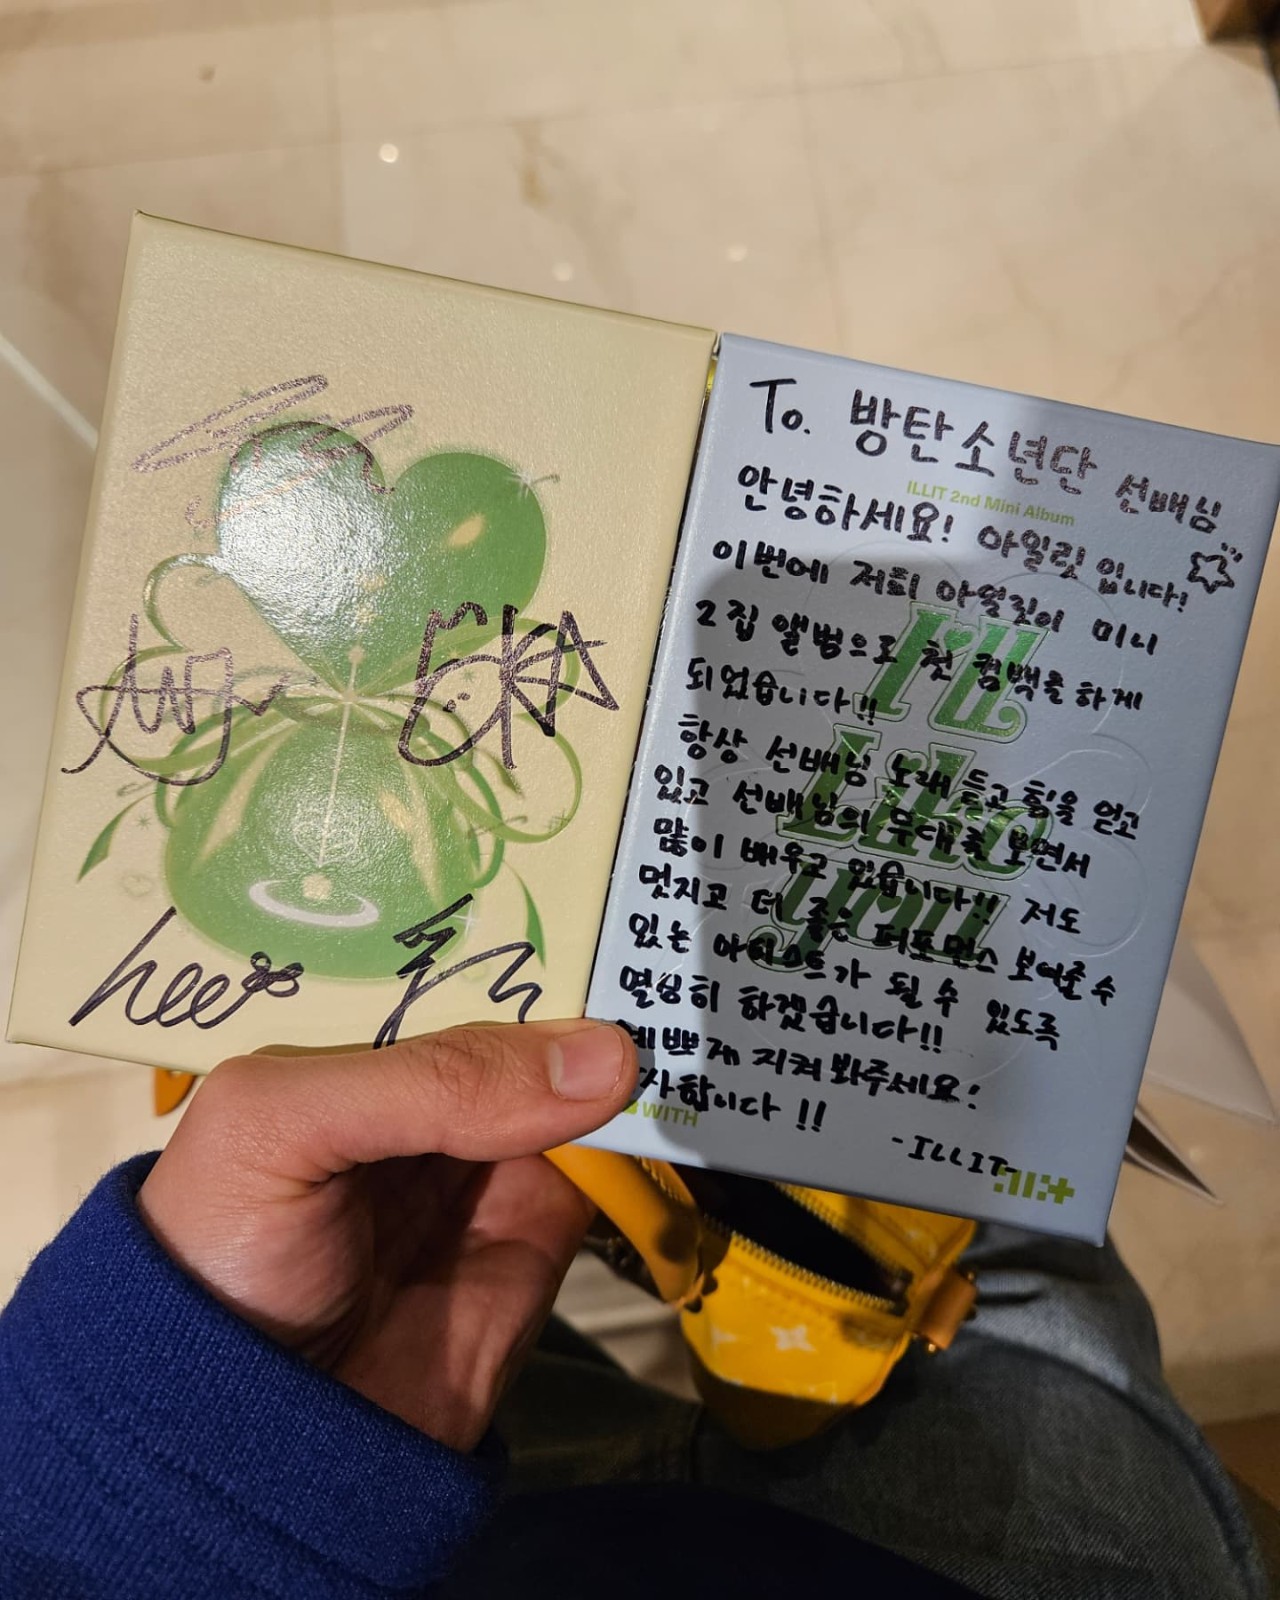 To. 방탄소년단 선배님
ILLIT 2nd Mini Album
안녕하세요! 아일릿 입니다!
이번에 저희 아일릿이 미니
2집 앨범으로 첫 컴백을 하게
되었습니다!!
항상 선배님 노래 듣고 힘을 얻고
있고 선배님의 무대를 보면서
많이 배우고 있습니다!! 저도
멋지고 더 좋은 퍼포먼스 보여줄 수
있는 아티스트가 될 수 있도록
열심히 하겠습니다!!
예쁘게 지켜 봐주세요!
사합니다 !!
WITH
-ILLIT-
I'll
Like
you